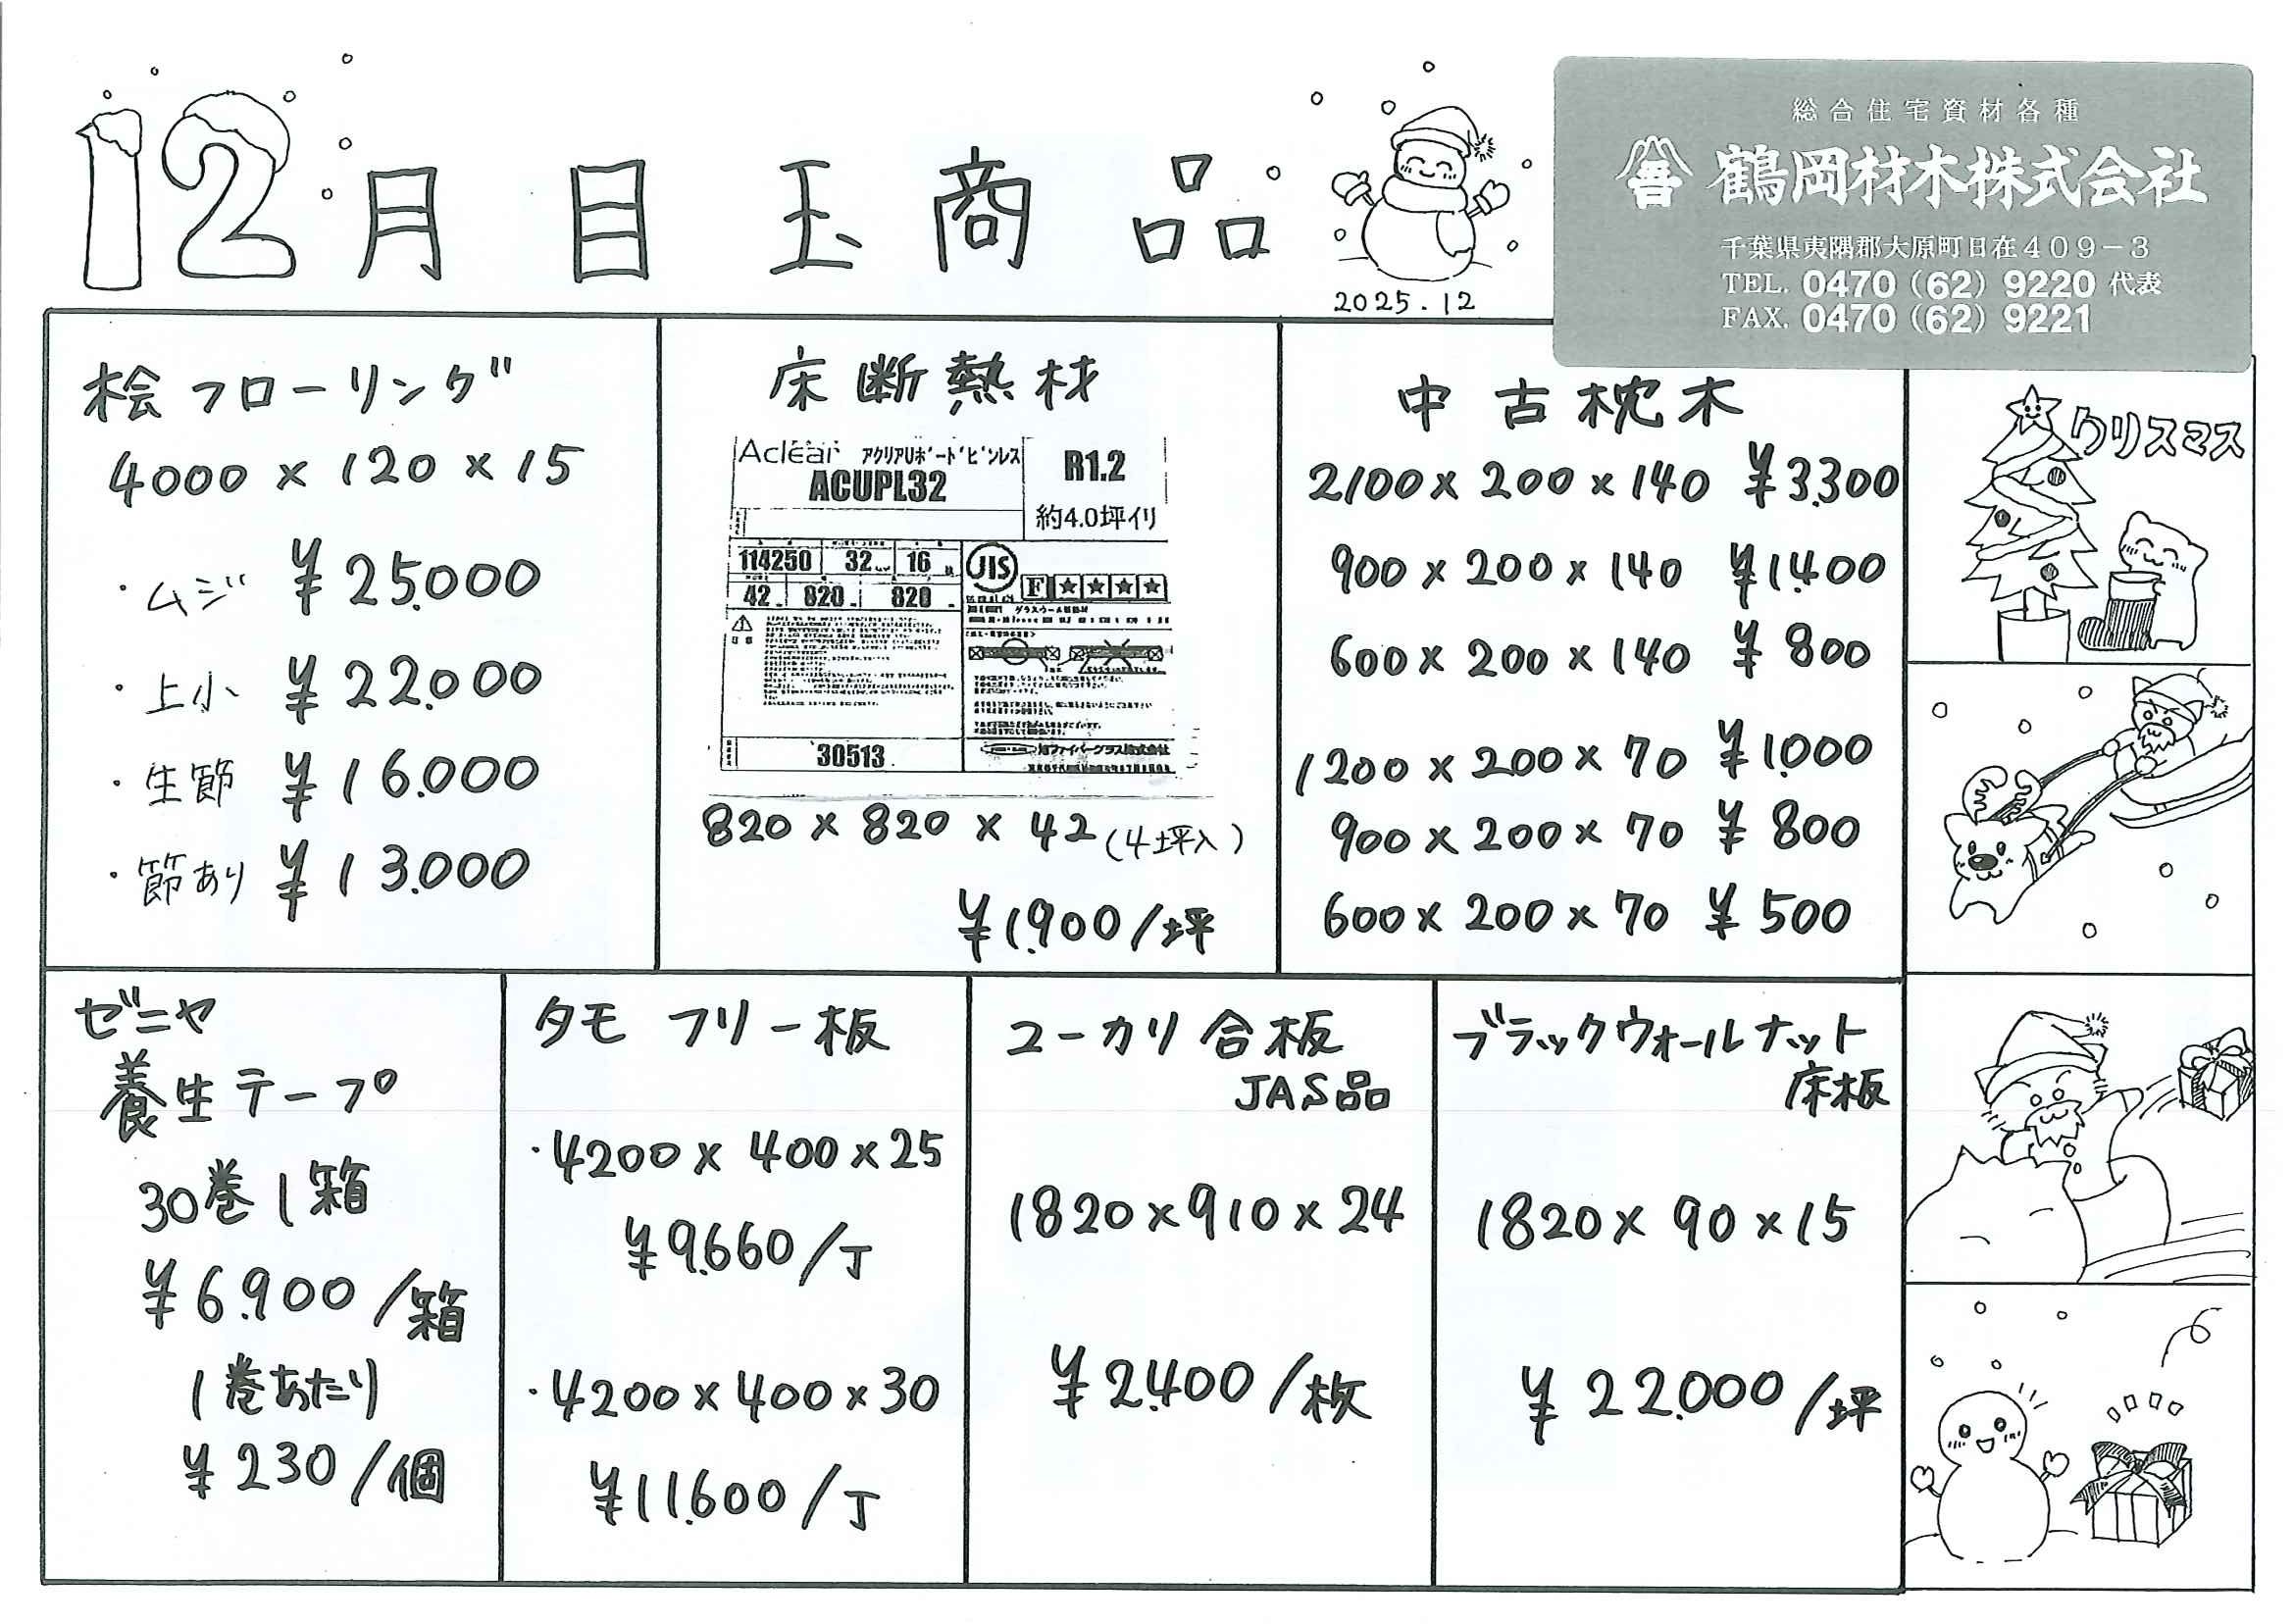 12月目玉商品
2025.12
総合住宅資材各種
鶴岡材木株式会社
千葉県夷隅郡大原町日在409-3
TEL. 0470(62)9220 代表
FAX. 0470(62)9221
桧フローリング
4000×120×15
・ムジ ¥25.000
・上小 ¥22.000
・生節 ¥16.000
・節あり ¥13.000
床断熱材
Aclear アクリアUボードピンレス
ACUPL32
R1.2
約4.0坪イリ
114250 32 16
42 820 820
JIS
F☆☆☆☆
30513
820×820×42(4坪入)
¥1.900/坪
中古枕木
2100×200×140 ¥3.300
900×200×140 ¥1.400
600×200×140 ¥800
1200×200×70 ¥1.000
900×200×70 ¥800
600×200×70 ¥500
クリスマス
ゼニヤ
養生テープ
30巻1箱
¥6.900/箱
1巻あたり
¥230/個
タモ フリー板
・4200×400×25
¥9.660/丁
・4200×400×30
¥11.600/丁
ユーカリ合板
JAS品
1820×910×24
¥2.400/枚
ブラックウォールナット
床板
1820×90×15
¥22.000/坪